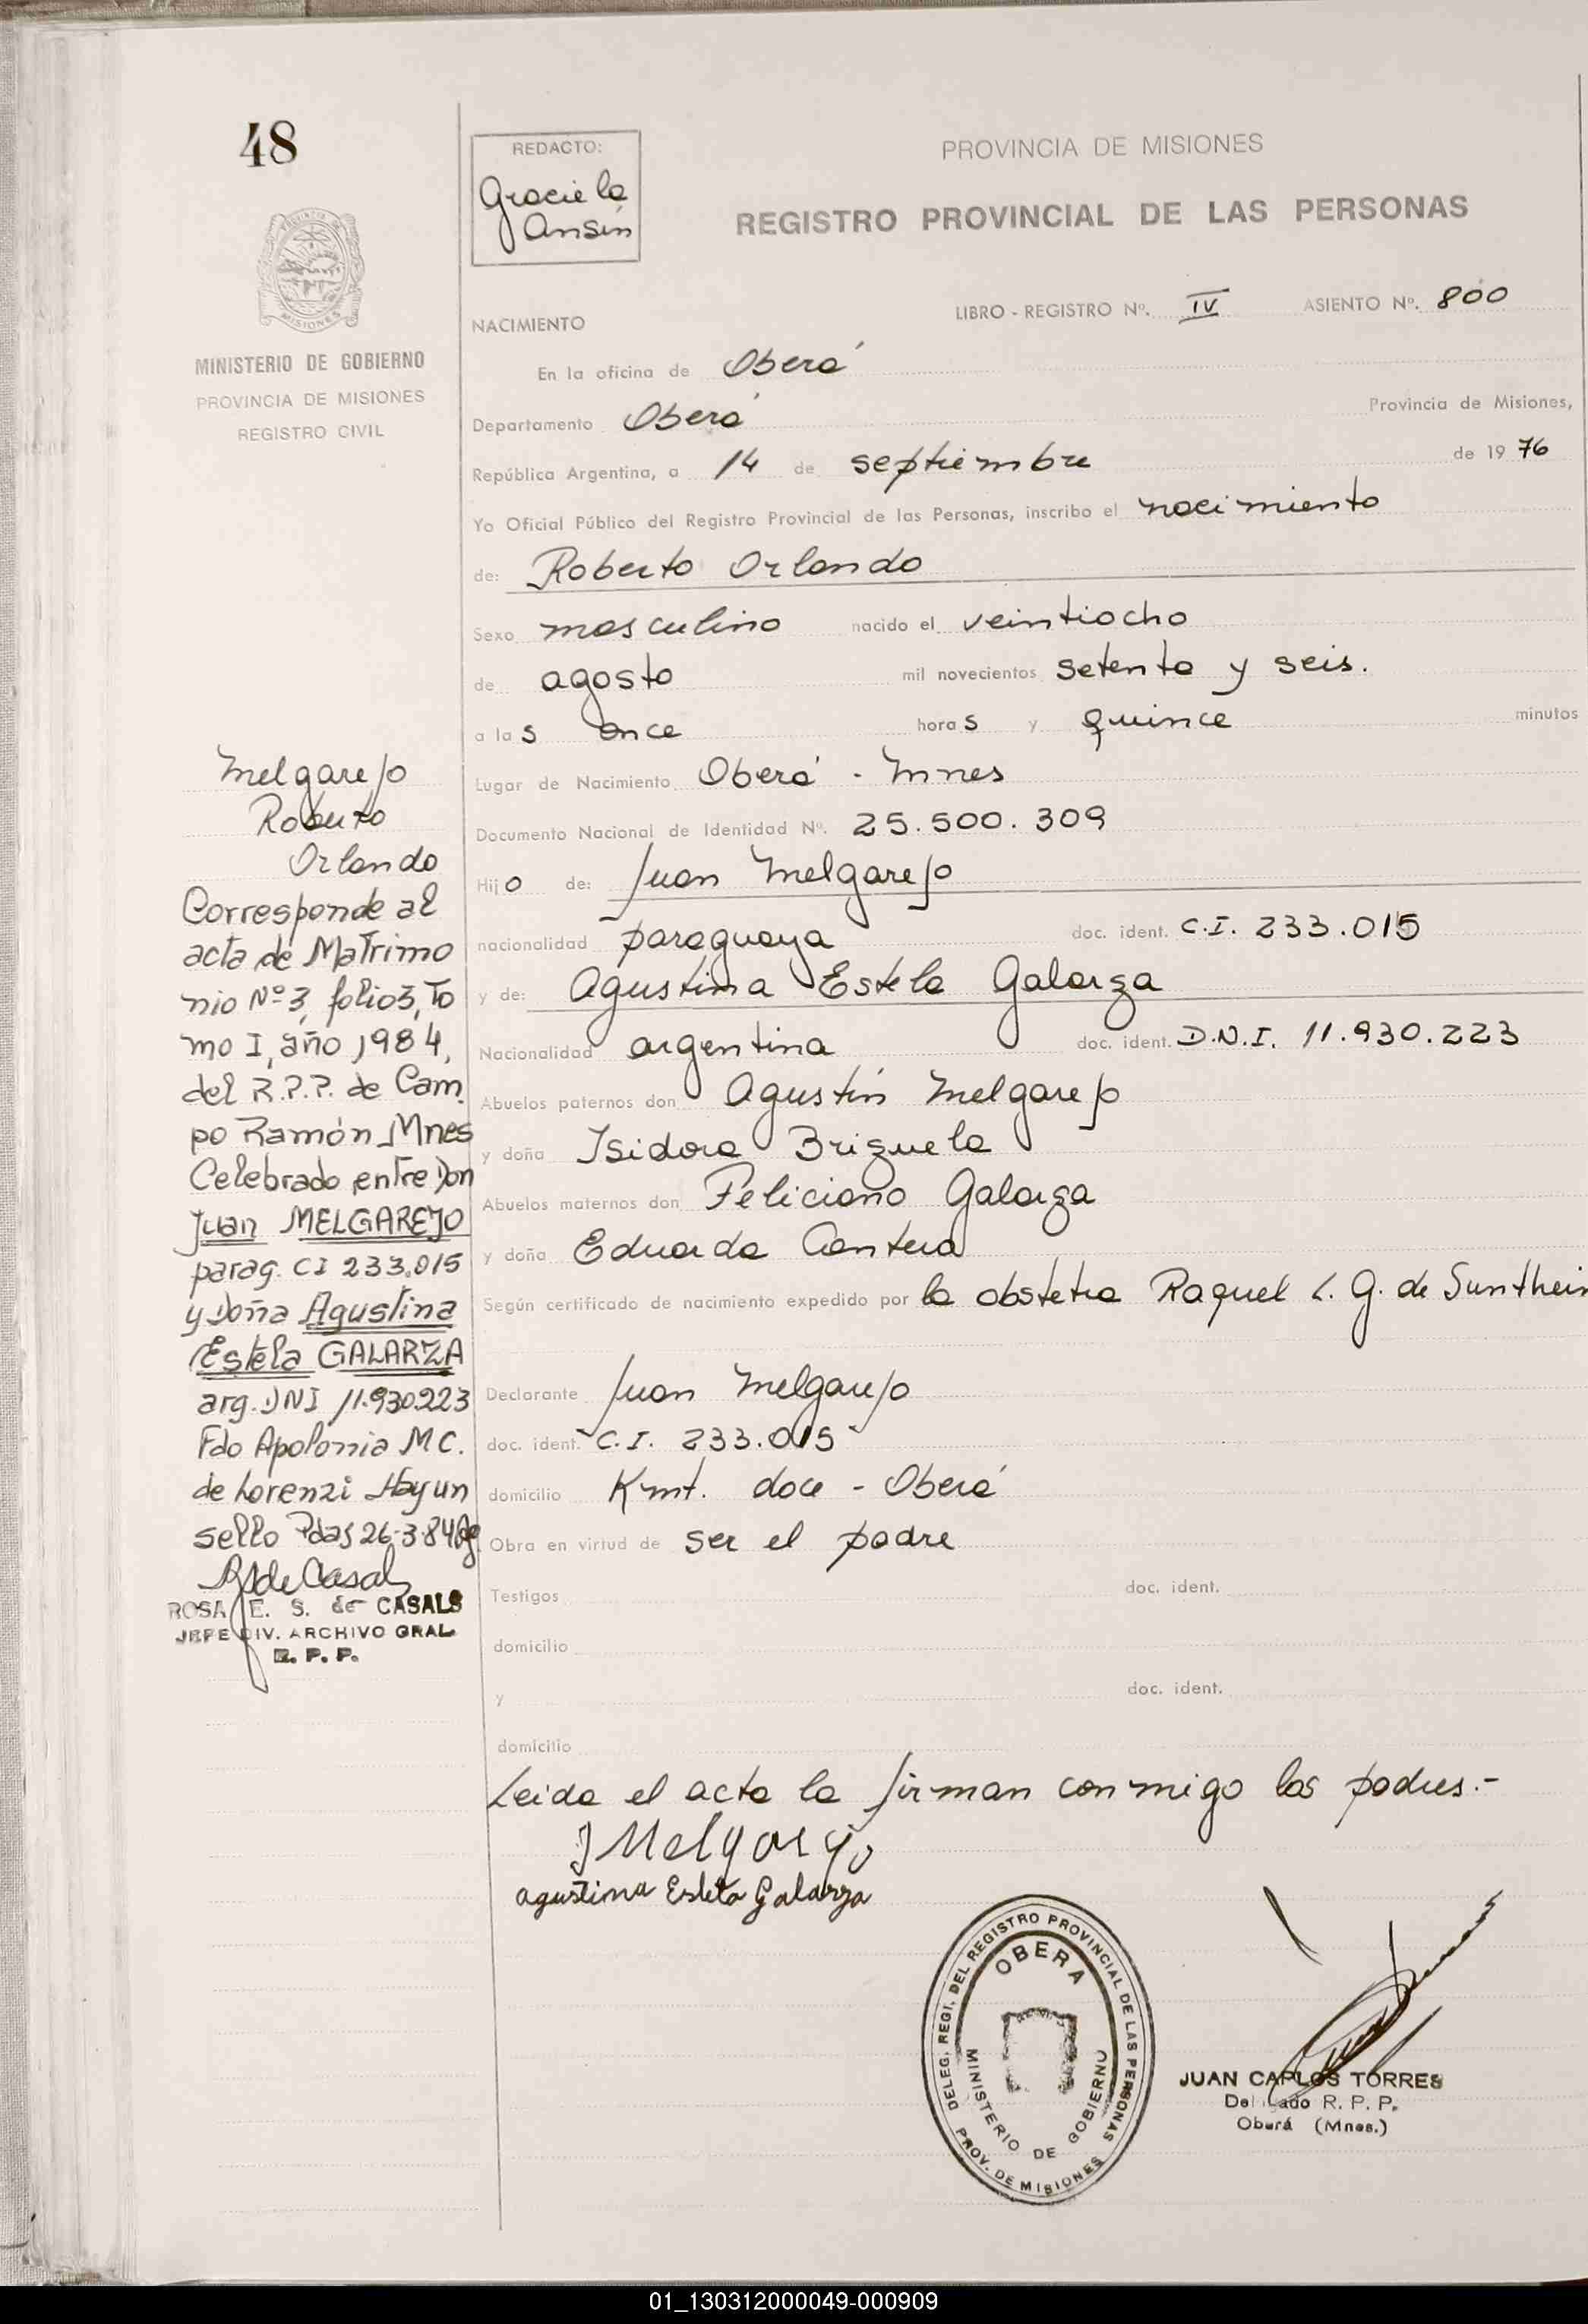 48
REDACTO:
Graciela
Ansin
PROVINCIA DE MISIONES
REGISTRO PROVINCIAL DE LAS PERSONAS
MISIONES
MINISTERIO DE GOBIERNO
PROVINCIA DE MISIONES
REGISTRO CIVIL
NACIMIENTO
LIBRO - REGISTRO Nº. IV ASIENTO Nº. 800
En la oficina de Oberá
Departamento Oberá Provincia de Misiones,
República Argentina, a 14 de septiembre de 1976
Yo Oficial Público del Registro Provincial de las Personas, inscribo el nacimiento
de: Roberto Orlando
Sexo masculino nacido el veintiocho
de agosto mil novecientos setenta y seis.
a las once horas y quince minutos
Lugar de Nacimiento Oberá - Mnes
Documento Nacional de Identidad Nº. 25.500.309
Hijo de: Juan Melgarejo
nacionalidad paraguaya doc. ident. C.I. 233.015
y de: Agustina Estela Galarza
Nacionalidad argentina doc. ident. D.N.I. 11.930.223
Abuelos paternos don Agustín Melgarejo
y doña Isidora Brizuela
Abuelos maternos don Feliciano Galarza
y doña Eduarda Cantero
Según certificado de nacimiento expedido por la obstetra Raquel L. G. de Sunthein
Declarante Juan Melgarejo
doc. ident. C.I. 233.015
domicilio Kmt. doce - Oberá
Obra en virtud de ser el padre
Testigos doc. ident.
domicilio
y doc. ident.
domicilio
Leida el acta la firman conmigo los padres.-
J Melgarejo
agustina Estela Galarza
Melgarejo
Roberto
Orlando
Corresponde al
acta de Matrimo
nio Nº 3, folio 3, To
mo I, año 1984,
del R.P.P. de Cam
po Ramón Mnes
Celebrado entre Don
Juan MELGAREJO
parag. CI 233.015
y Doña Agustina
Estela GALARZA
arg. DNI 11.930.223
Fdo Apolonia M C.
de Lorenzi Hay un
sello Pdas 26-3-84
RSdeCasals
ROSA E. S. de CASALS
JEFE DIV. ARCHIVO GRAL
R. P. P.
DELEG. REGI. DEL REGISTRO PROVINCIAL DE LAS PERSONAS
OBERA
MINISTERIO DE GOBIERNO
PROV. DE MISIONES
JUAN CARLOS TORRES
Delegado R. P. P.
Oberá (Mnes.)
01_130312000049-000909